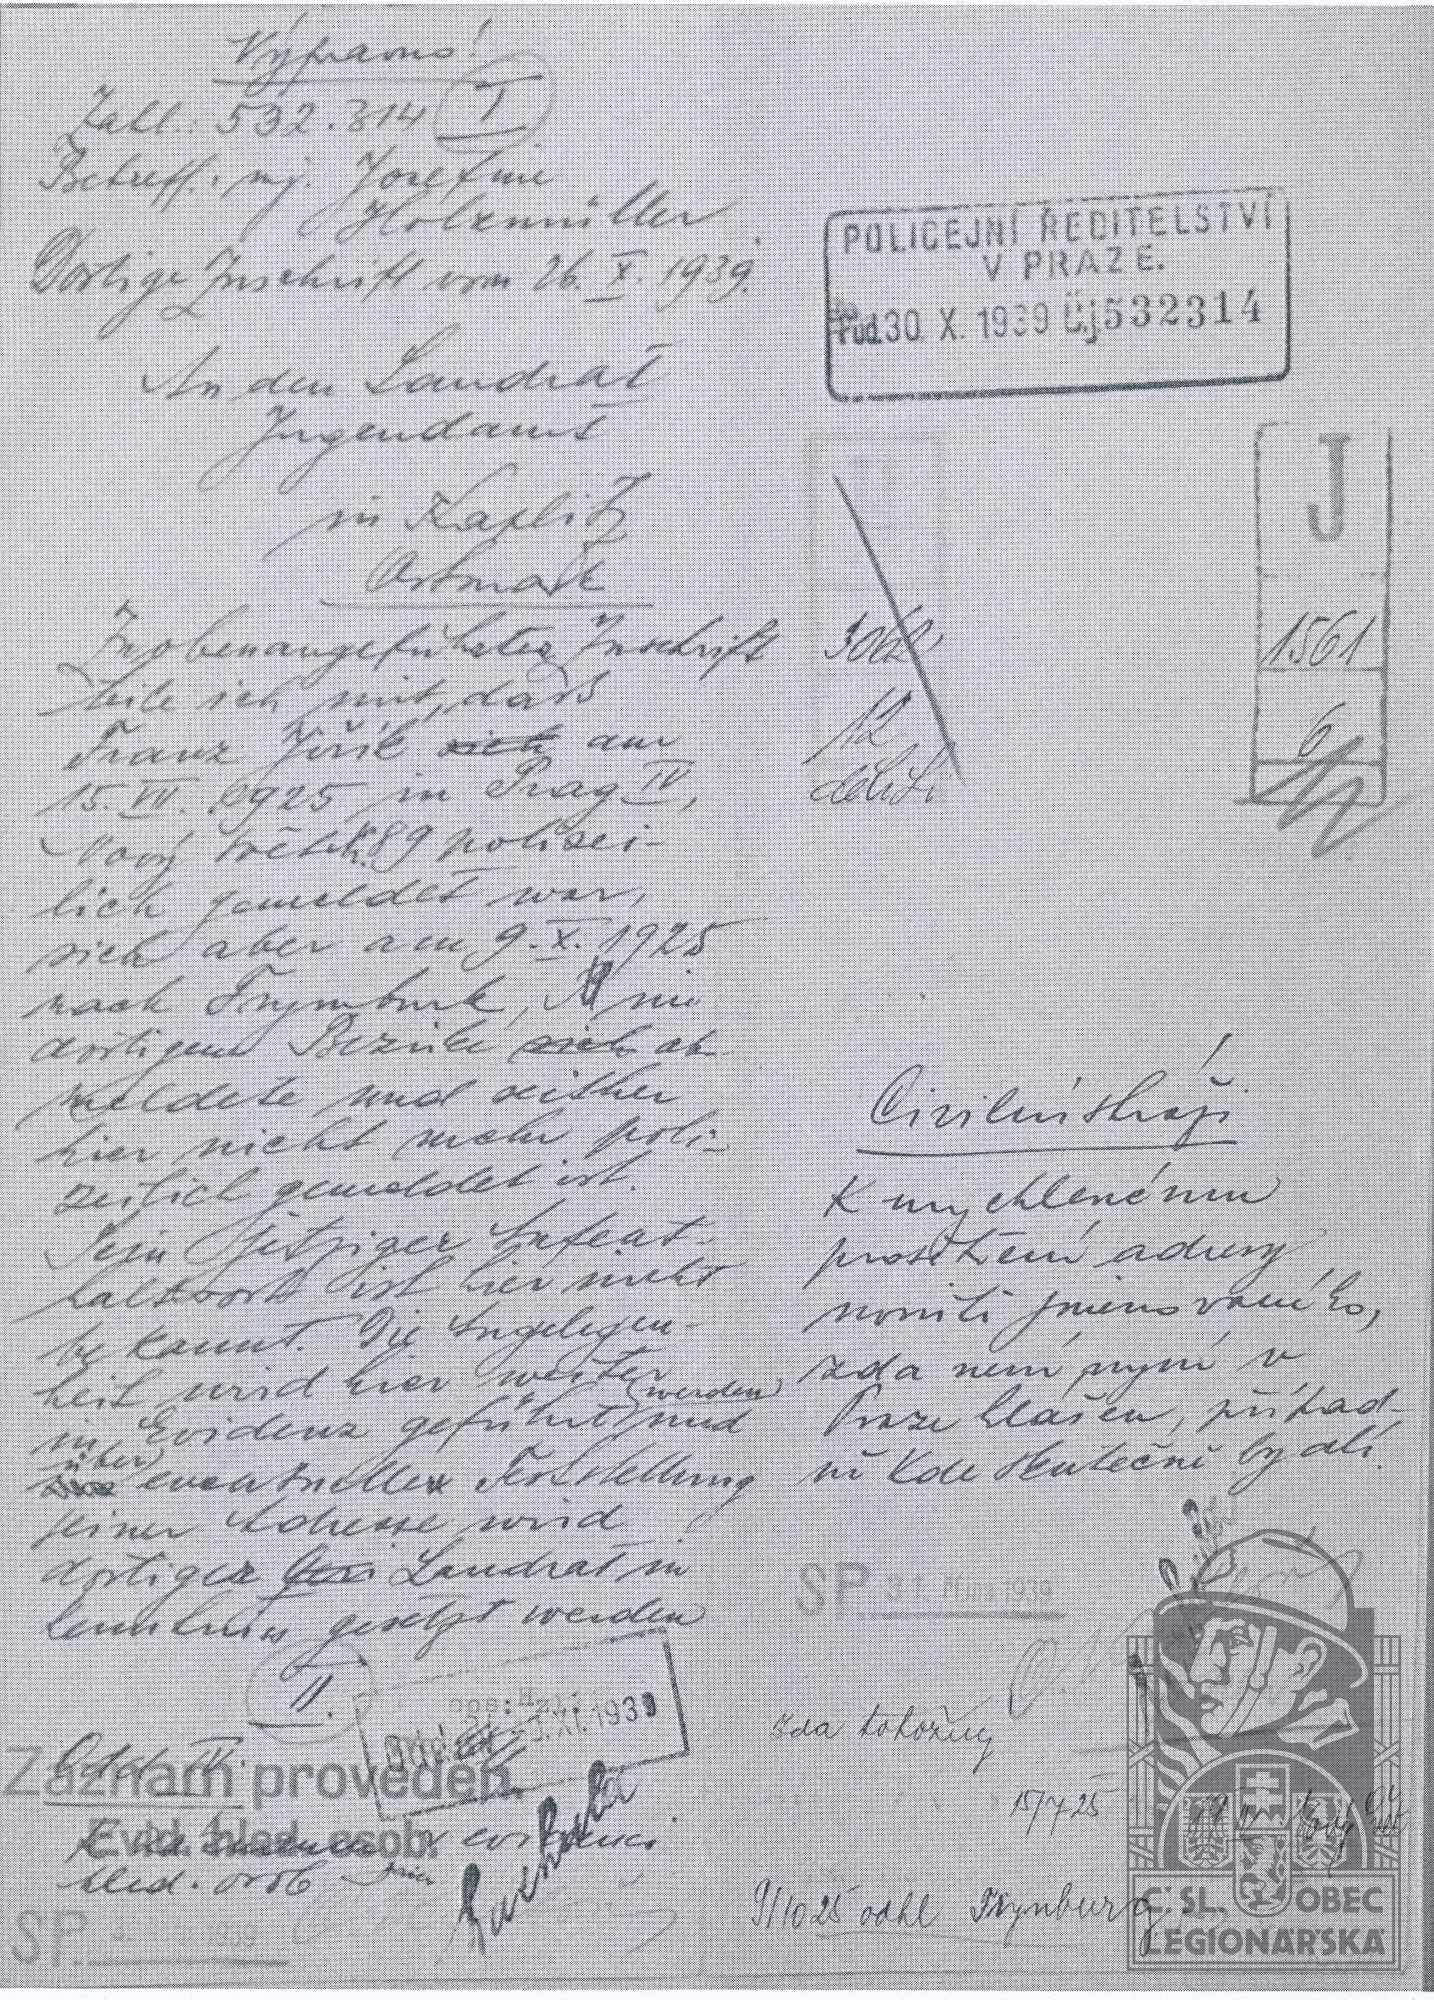 Výpravna!
Zahl.: 532.314 I
Betreff.: mj. Josefine
Holzmüller
Dortige Zuschrift vom 26. X. 1939.
An den Landrat
Jugendamt
in Kaplitz
Ostmark
Zu obenangeführter Zuschrift
teile ich mit, dass
Franz Jiřík sich am
15. VII. 1925 in Prag IV,
Nový svět k. 89 polizei-
lich gemeldet war,
sich aber am 9. X. 1925
nach Frymburk, im
dortigen Bezirke sich ab-
meldete und seither
hier nicht mehr poli-
zeilich gemeldet ist.
Sein jetziger Aufent-
haltsort ist hier nicht
bekannt. Die Angelegen-
heit wird hier weiter
in Evidenz geführt werden und
über eventuelle Feststellung
seiner Adresse wird
dortiger Landrat in
Kenntnis gesetzt werden
II.
Odd. IV.
Záznam proveden.
Evid. hled. osob.
v evidenci
hled. osob
SP.
POLICEJNÍ ŘEDITELSTVÍ
V PRAZE.
30. X. 1939 Čj 532314
J
1561
6
12
Civilní stráži
K urychlenému
prozkoumání adresy
jmenovaného,
zda není nyní v
Praze hlášen, případ-
ně kde skutečně bydlí.
SP. 31. října 1939
XI. 1939
zda totožný
15/7 25
9/10 25 odhl Frymburg
Č.SL. OBEC
LEGIONÁŘSKÁ